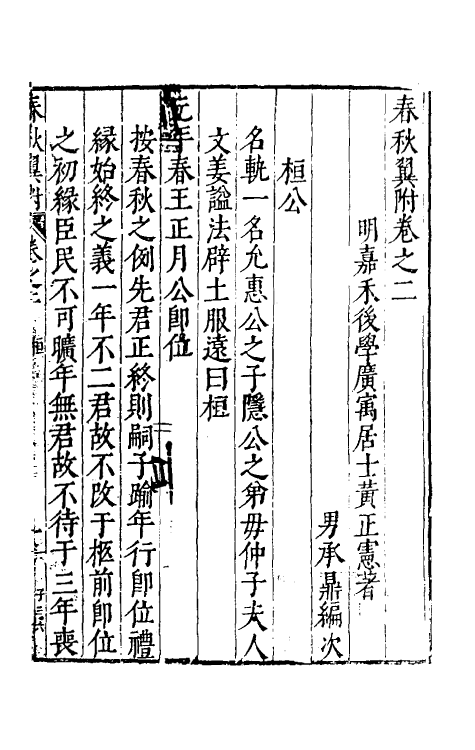 春秋翼附卷之二
明嘉禾後學廣寓居士黃正憲著
男承鼎編次
桓公
名軌一名允惠公之子隱公之弟毋仲子夫人
文姜謚法辟土服遠曰桓
元年春王正月公卽位
按春秋之例先君正終則嗣子踰年行卽位禮
縁始終之義一年不二君故不改于柩前卽位
之初縁臣民不可曠年無君故不待于三年喪
春秋翼附 卷之二